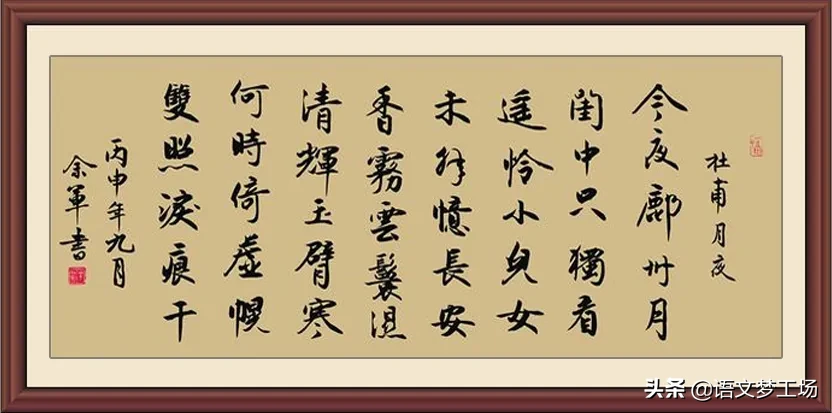 杜甫月夜
今夜鄜州月
閨中只獨看
遥怜小兒女
未解憶長安
香霧雲鬟濕
清輝玉臂寒
何時倚虚幌
雙照淚痕干
丙申年九月
余軍書
头条 @语文梦工场